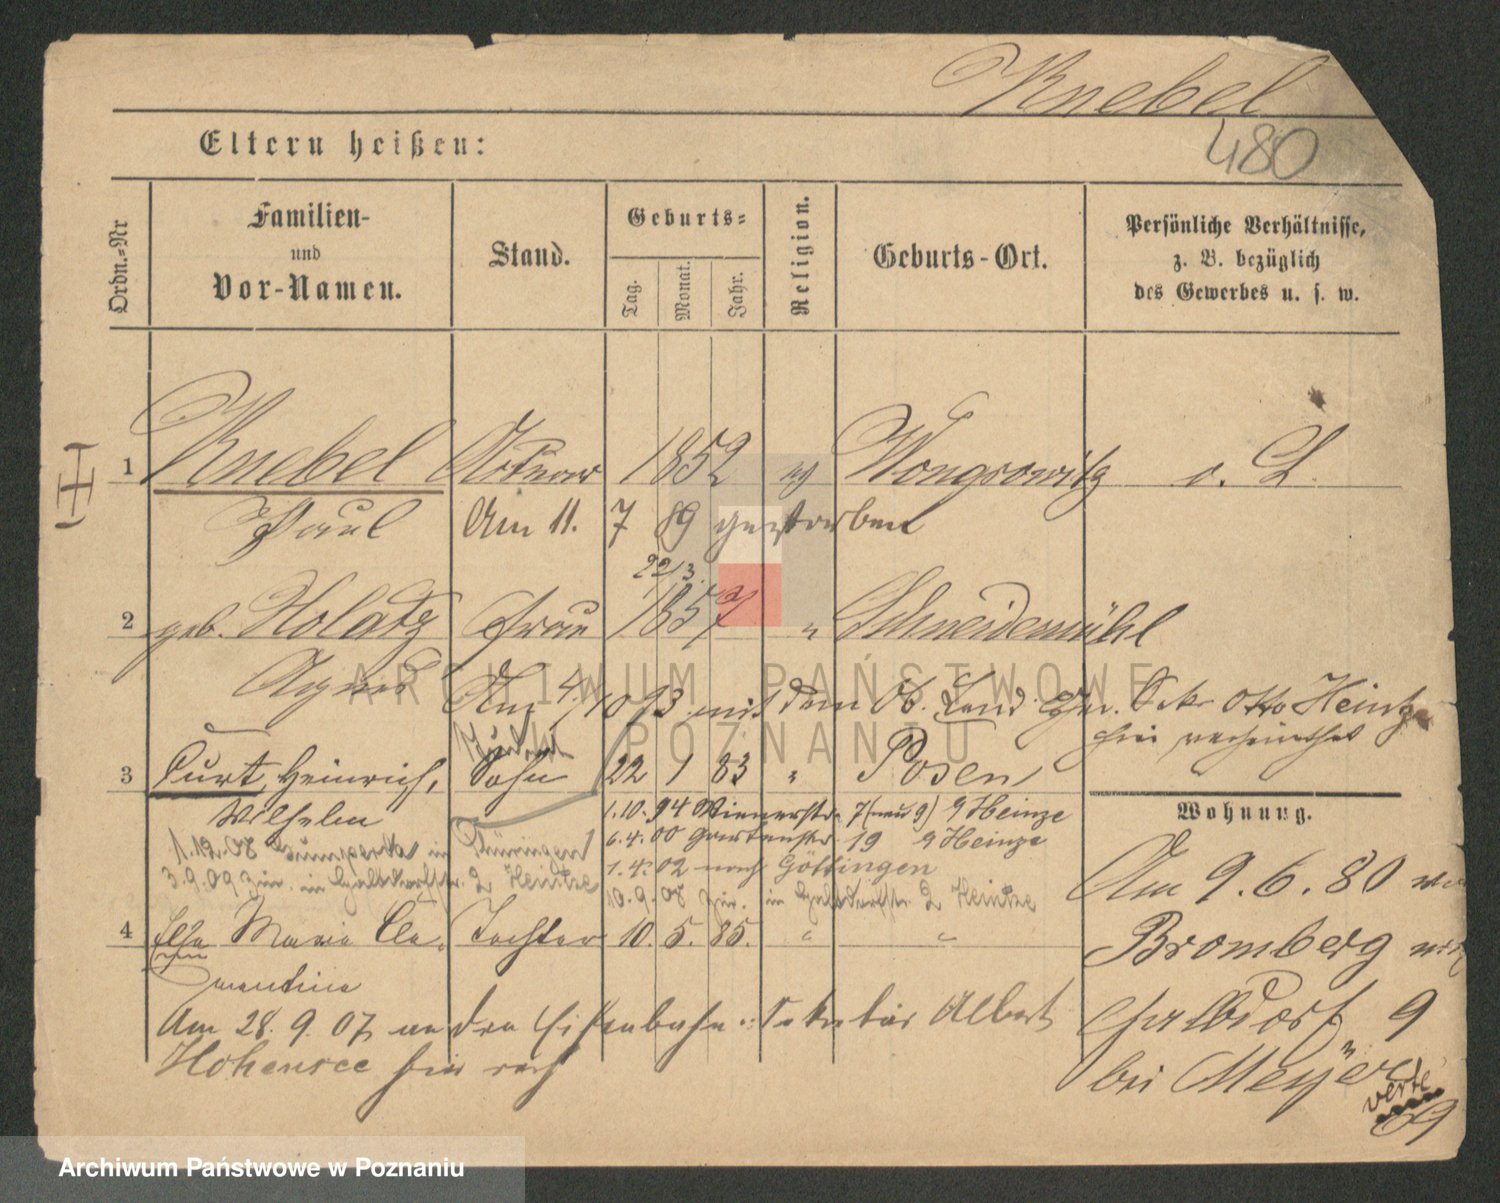 Knebel
480
Eltern heißen:
Ordn.-Nr
Familien-
und
Vor-Namen.
Stand.
Geburts-
Tag.
Monat.
Jahr.
Religion.
Geburts-Ort.
Persönliche Verhältnisse,
z. B. bezüglich
des Gewerbes u. s. w.
1 Knebel 1852 Wongrowitz o. L.
Paul Am 11. 7 89 gestorben
22/3.
2 geb. Holatz Frau 1857 " Schneidemühl
Agnes Am 4/10 93 mit dem Ob. Land. Ger. Sekr Otto Heintze
hier verheirathet
Student
3 Curt, Heinrich, Sohn 22 1 83 " Posen
Wilhelm
1.10.94 Wienerstr. 7 (neu 9) Heinze
6.4.00 Gartenstr. 19 Heinze
1.4.02 nach Göttingen
1.12.08 in Thüringen
10.9.08 in 2 Heintze
3.9.09 in 2 Heintze
4 Else Marie Cle- Tochter 10. 5. 85. " "
mentine
Am 28.9.07 an den Eisenbahn-Sekretär Albert
Hohensee hier verh
Wohnung.
Am 9.6.80
Bromberg
9
bei Meyer
verte
69
ARCHIWUM PAŃSTWOWE
W POZNANIU
Archiwum Państwowe w Poznaniu